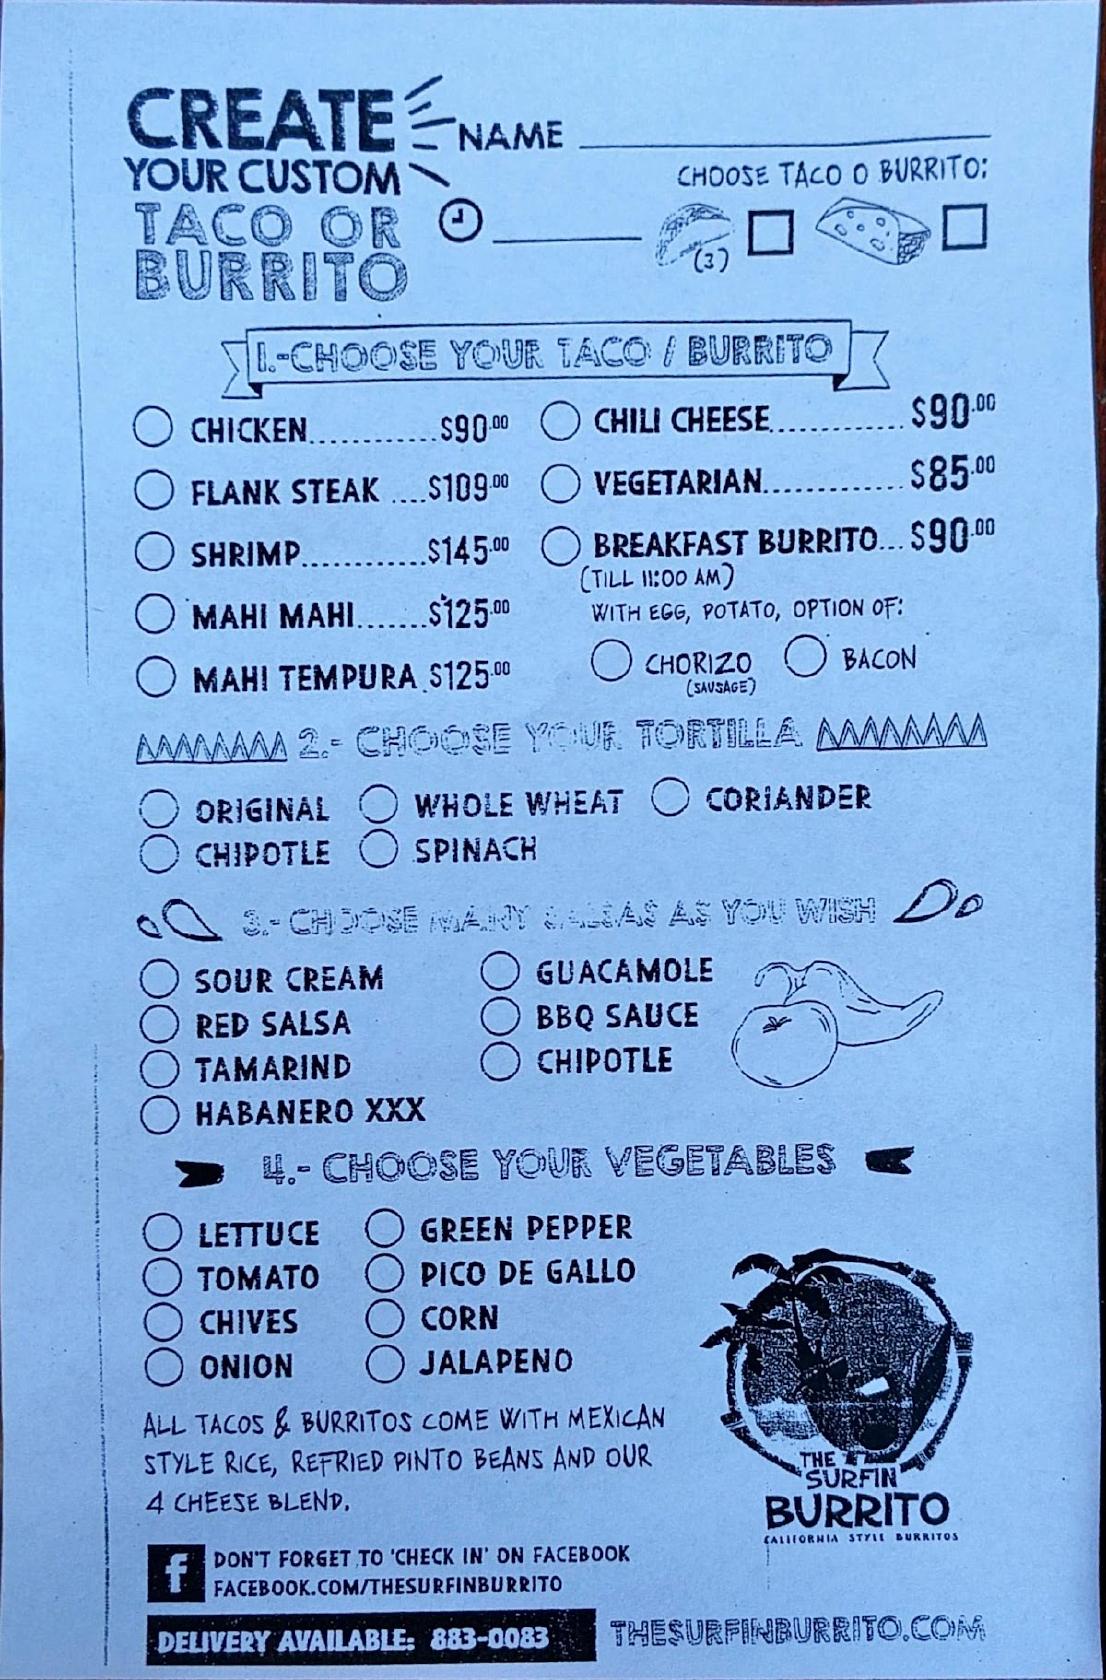 CREATE
YOUR CUSTOM
TACO OR
BURRITO
NAME
CHOOSE TACO O BURRITO:
(3)
1.-CHOOSE YOUR TACO / BURRITO
CHICKEN............$90.00
FLANK STEAK ....$109.00
SHRIMP............$145.00
MAHI MAHI.......$125.00
MAHI TEMPURA.$125.00
CHILI CHEESE.............$90.00
VEGETARIAN..............$85.00
BREAKFAST BURRITO...$90.00
(TILL 11:00 AM)
WITH EGG, POTATO, OPTION OF:
CHORIZO BACON
(SAUSAGE)
2.- CHOOSE YOUR TORTILLA
ORIGINAL WHOLE WHEAT CORIANDER
CHIPOTLE SPINACH
3.- CHOOSE MANY SALSAS AS YOU WISH
SOUR CREAM
RED SALSA
TAMARIND
HABANERO XXX
GUACAMOLE
BBQ SAUCE
CHIPOTLE
4.- CHOOSE YOUR VEGETABLES
LETTUCE
TOMATO
CHIVES
ONION
GREEN PEPPER
PICO DE GALLO
CORN
JALAPENO
ALL TACOS & BURRITOS COME WITH MEXICAN
STYLE RICE, REFRIED PINTO BEANS AND OUR
4 CHEESE BLEND.
THE
SURFIN
BURRITO
CALIFORNIA STYLE BURRITOS
f
DON'T FORGET TO 'CHECK IN' ON FACEBOOK
FACEBOOK.COM/THESURFINBURRITO
DELIVERY AVAILABLE: 883-0083
THESURFINBURRITO.COM